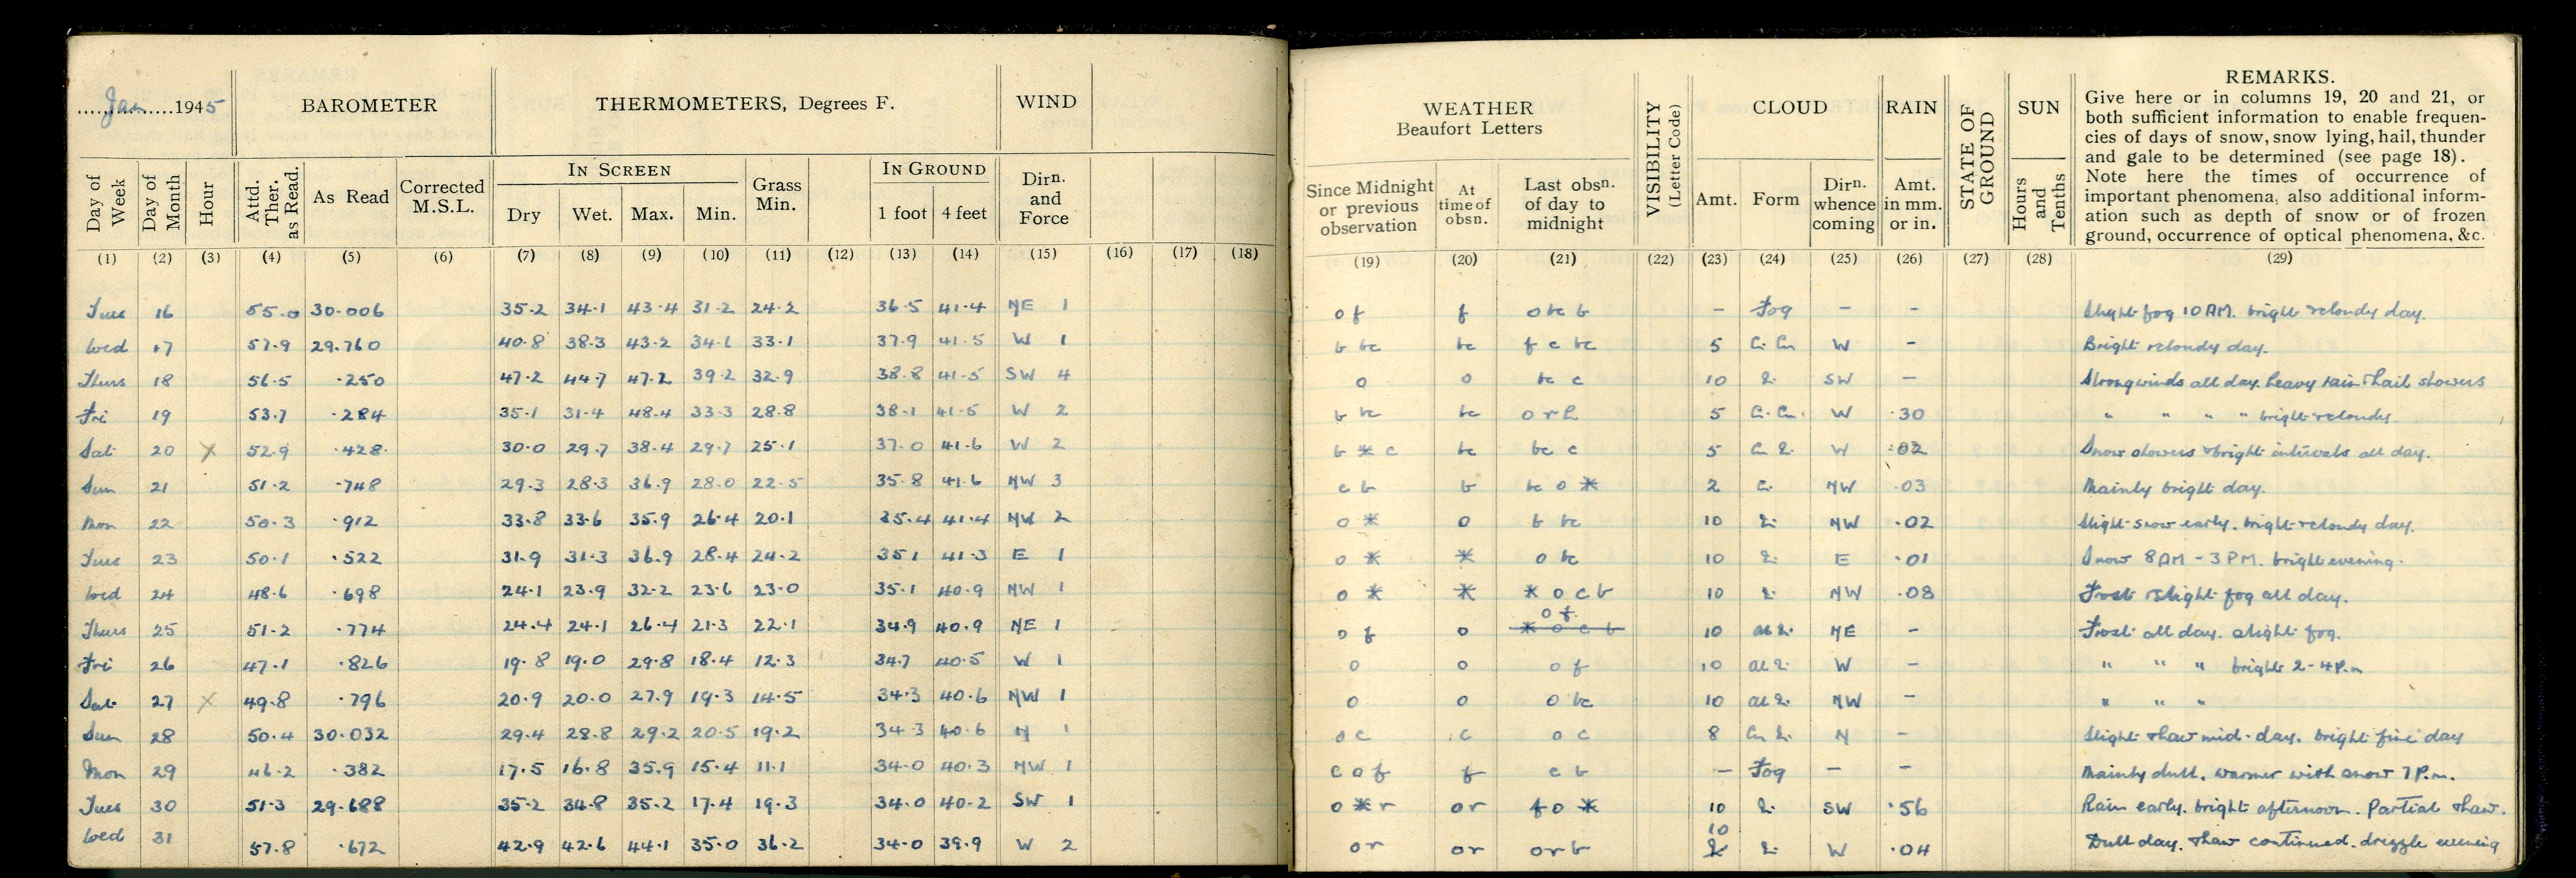 Jan 1945 BAROMETER THERMOMETERS, Degrees F. WIND
In Screen In Ground
Day of Week Day of Month Hour Attd. Ther. as Read. As Read Corrected M.S.L. Dry Wet. Max. Min. Grass Min. 1 foot 4 feet Dirn. and Force
(1) (2) (3) (4) (5) (6) (7) (8) (9) (10) (11) (12) (13) (14) (15) (16) (17) (18)
Tues 16 55.0 30.006 35.2 34.1 43.4 31.2 24.2 36.5 41.4 NE 1
Wed 17 57.9 29.760 40.8 38.3 43.2 34.6 33.1 37.9 41.5 W 1
Thurs 18 56.5 .250 47.2 44.7 47.2 39.2 32.9 38.8 41.5 SW 4
Fri 19 53.7 .284 35.1 31.4 48.4 33.3 28.8 38.1 41.5 W 2
Sat 20 X 52.9 .428 30.0 29.7 38.4 29.7 25.1 37.0 41.6 W 2
Sun 21 51.2 .748 29.3 28.3 36.9 28.0 22.5 35.8 41.6 NW 3
Mon 22 50.3 .912 33.8 33.6 35.9 26.4 20.1 35.4 41.4 NW 2
Tues 23 50.1 .522 31.9 31.3 36.9 28.4 24.2 35.1 41.3 E 1
Wed 24 48.6 .698 24.1 23.9 32.2 23.6 23.0 35.1 40.9 NW 1
Thurs 25 51.2 .774 24.4 24.1 26.4 21.3 22.1 34.9 40.9 NE 1
Fri 26 47.1 .826 19.8 19.0 29.8 18.4 12.3 34.7 40.5 W 1
Sat 27 X 49.8 .796 20.9 20.0 27.9 19.3 14.5 34.3 40.6 NW 1
Sun 28 50.4 30.032 29.4 28.8 29.2 20.5 19.2 34.3 40.6 N 1
Mon 29 46.2 .382 17.5 16.8 35.9 15.4 11.1 34.0 40.3 NW 1
Tues 30 51.3 29.688 35.2 34.8 35.2 17.4 19.3 34.0 40.2 SW 1
Wed 31 57.8 .672 42.9 42.6 44.1 35.0 36.2 34.0 39.9 W 2
WEATHER Beaufort Letters VISIBILITY (Letter Code) CLOUD RAIN STATE OF GROUND SUN
REMARKS.
Give here or in columns 19, 20 and 21, or
both sufficient information to enable frequen-
cies of days of snow, snow lying, hail, thunder
and gale to be determined (see page 18).
Note here the times of occurrence of
important phenomena, also additional inform-
ation such as depth of snow or of frozen
ground, occurrence of optical phenomena, &c.
Since Midnight or previous observation At time of obsn. Last obsn. of day to midnight Amt. Form Dirn. whence coming Amt. in mm. or in. Hours and Tenths
(19) (20) (21) (22) (23) (24) (25) (26) (27) (28) (29)
o f f o bc b - Fog - - Slight fog 10 AM. bright & cloudy day.
b bc bc f c bc 5 Ci. Cu W - Bright & cloudy day.
o o bc c 10 St. SW - Strong winds all day. heavy rain & hail showers
b bc bc o r h 5 Ci. Cu. W .30 " " " " bright & cloudy.
b * c bc bc c 5 Cu St. W .02 Snow showers & bright intervals all day.
c b b bc o * 2 Ci. NW .03 Mainly bright day.
o * o b bc 10 St. NW .02 Slight snow early. bright & cloudy day.
o * * o bc 10 St. E .01 Snow 8 AM - 3 PM. bright evening.
o * * * o c b 10 St. NW .08 Frost & slight fog all day.
o f o o f * o c b 10 Alt St. NE - Frost all day. slight fog.
o o o f 10 Alt St. W - " " " bright 2-4 P.m
o o o bc 10 Alt St. NW - " " "
o c c o c 8 Cu St. N - Slight thaw mid-day. bright fine day
c o f f c b - Fog - - Mainly dull. warmer with snow 7 P.m.
o * r o r f o * 10 St. SW .56 Rain early. bright afternoon. Partial thaw.
o r o r o r b 10 St. W .04 Dull day. Thaw continued. drizzle evening